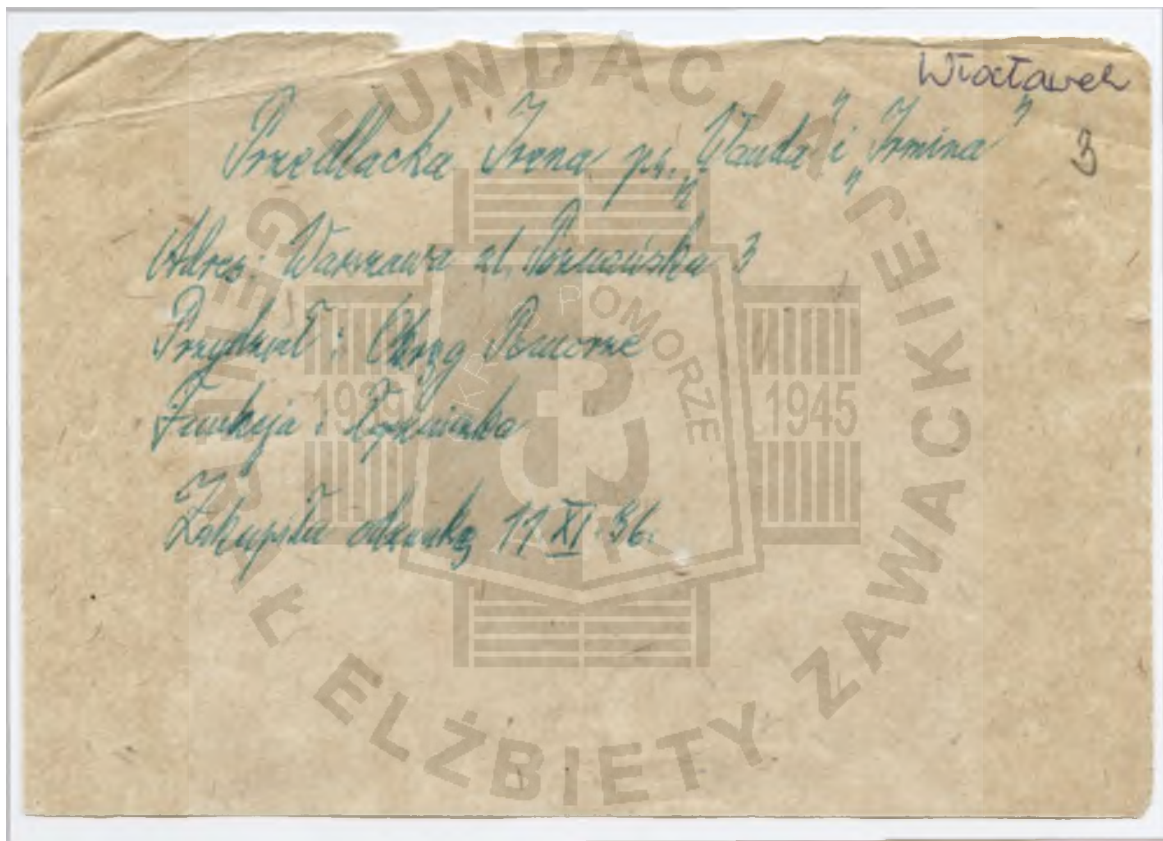 Włocławek
Przedlacka Irena ps. „Wanda” i „Irmina”
3
Adres: Warszawa ul. Poznańska 3
Przydział: Okręg Pomorze
Funkcja: Łączniczka
Zakupiła odznakę 11 XI 56.
FUNDACJA GENERAŁ ELŻBIETY ZAWACKIEJ
OKRĘG POMORZE
1939 1945
AK